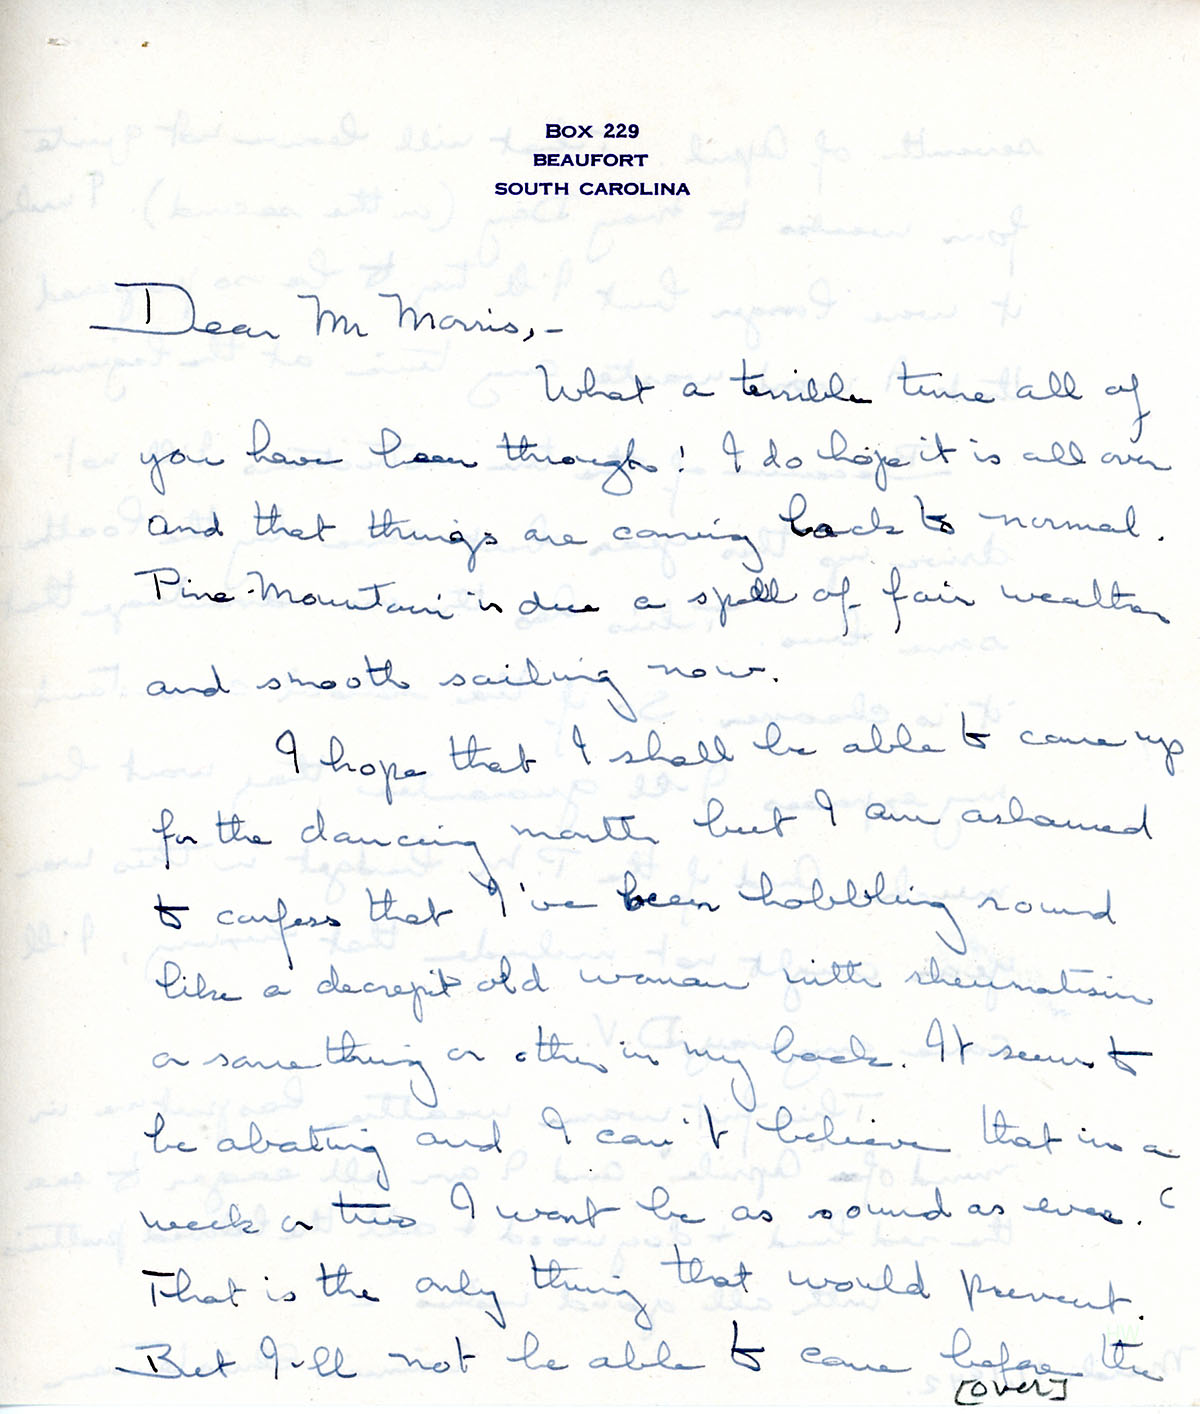 BOX 229
BEAUFORT
SOUTH CAROLINA
Dear Mr Morris,-
What a terrible time all of
you have been through! I do hope it is all over
and that things are coming back to normal.
Pine Mountain is due a spell of fair weather
and smooth sailing now.
I hope that I shall be able to come up
for the dancing month but I am ashamed
to confess that I've been hobbling round
like a decrepit old woman with rheumatism
or something or other in my back. It seems to
be abating and I can't believe that in a
week or two I wont be as sound as ever.
That is the only thing that would prevent.
But I'll not be able to come before the
[over]